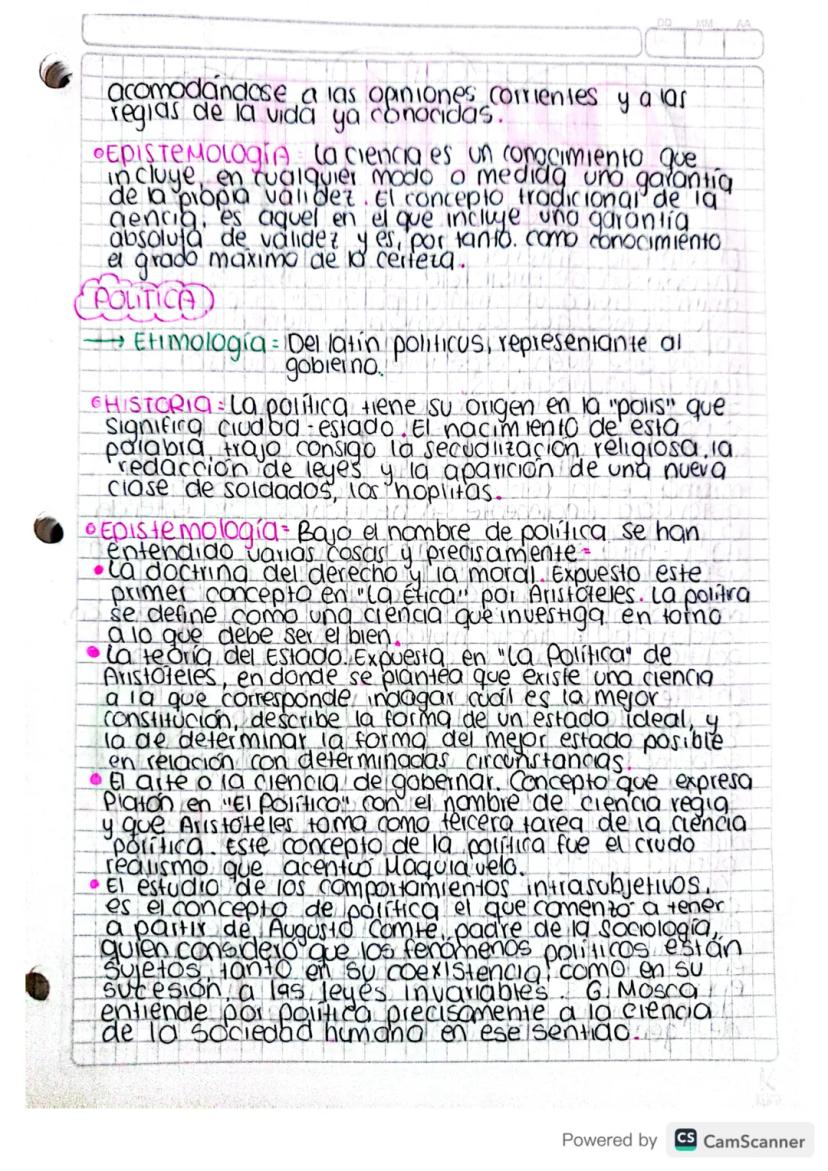 DD MM AA
acomodándose a las opniones corrientes y a las
reglas de la vida ya conocidas.
EPISTEMOLOGÍA: La ciencia es un conocimiento que
incluye, en cualquier modo o medida una garantía
de la propia validez. El concepto tradicional de la
ciencia, es aquel en el que incluye una garantía
absoluta de validez y es, por tanto. como conocimiento
el grado máximo de la certeza.
POLÍTICA
→ Etimología: Del latín politicus, representante al
gobierno.
HISTORIA: La política tiene su origen en la "polis" que
significa ciudad-estado. El nacimiento de esta
palabra, trajo consigo la secualización religiosa, la
redacción de leyes y la aparición de una nueva
clase de soldados, los hoplitas.
Epistemología: Bajo el nombre de política se han
entendido varias cosas y precisamente:
• La doctrina del derecho y la moral. Expuesto este
primer concepto en "La Ética" por Aristóteles. La polítra
se define como una ciencia que investiga en torno
a lo que debe ser el bien.
• La teoría del Estado. Expuesta en "La Política" de
Aristóteles, en donde se plantea que existe una ciencia
a la que corresponde indagar cuál es la mejor
constitución, describe la forma de un estado ideal, y
la de determinar la forma del mejor estado posible
en relación con determinadas circunstancias.
• El arte o la ciencia de gobernar. Concepto que expresa
Platón en "El Político" con el nombre de ciencia regia
y que Aristóteles toma como tercera tarea de la ciencia
política. Este concepto de la política fue el crudo
realismo que acentuó Maquiavelo.
• El estudio de los comportamientos intrasubjetivos,
es el concepto de política el que comentó a tener
a partir de Augusto Comte, padre de la Sociología,
quien consideró que los fenómenos políticos están
sujetos, tanto en su coexistencia, como en su
sucesión, a las leyes invariables. G. Mosca
entiende por política precisamente a la ciencia
de la sociedad humana en ese sentido.
Powered by CS CamScanner